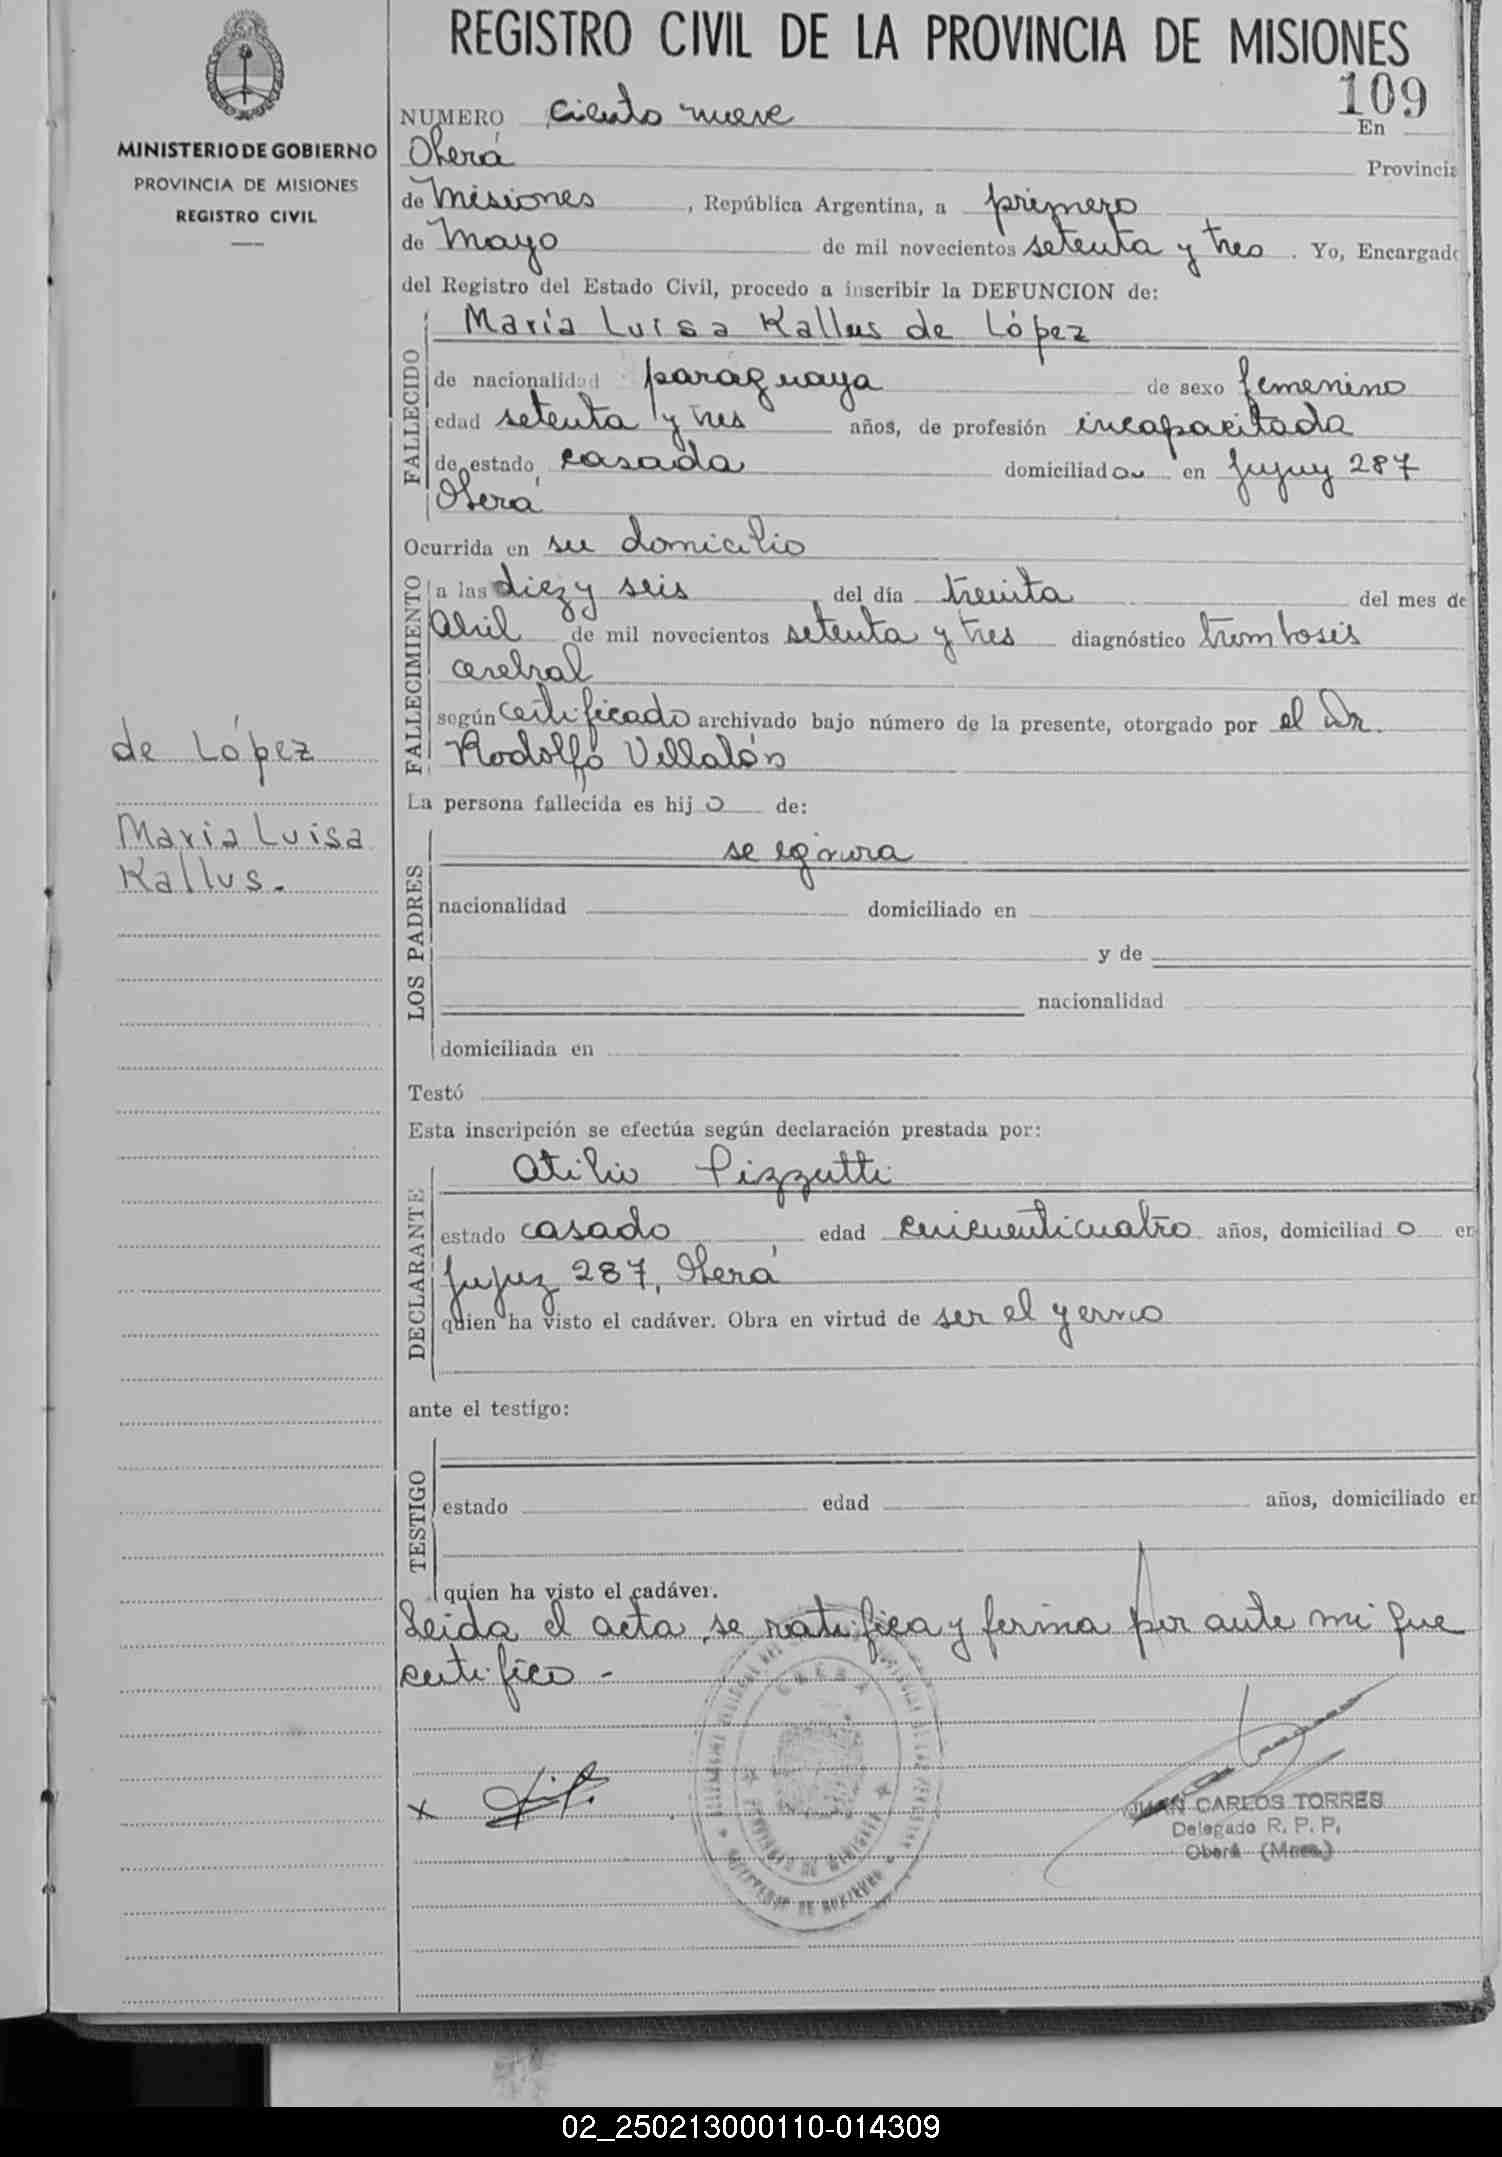 REGISTRO CIVIL DE LA PROVINCIA DE MISIONES
109
MINISTERIO DE GOBIERNO
PROVINCIA DE MISIONES
REGISTRO CIVIL
NUMERO ciento nueve En
Oberá Provincia
de Misiones, República Argentina, a primero
de Mayo de mil novecientos setenta y tres. Yo, Encargado
del Registro del Estado Civil, procedo a inscribir la DEFUNCION de:
FALLECIDO
María Luisa Kallus de López
de nacionalidad paraguaya de sexo femenino
edad setenta y tres años, de profesión incapacitada
de estado casada domiciliada en Jujuy 287
Oberá
Ocurrida en su domicilio
FALLECIMIENTO
a las diez y seis del día treinta del mes de
Abril de mil novecientos setenta y tres diagnóstico trombosis
cerebral
según certificado archivado bajo número de la presente, otorgado por el Dr.
Rodolfo Villalón
de López
María Luisa
Kallus.-
La persona fallecida es hijo de:
LOS PADRES
se ignora
nacionalidad domiciliado en
y de
nacionalidad
domiciliada en
Testó
Esta inscripción se efectúa según declaración prestada por:
DECLARANTE
Atilio Pizzutti
estado casado edad cincuenticuatro años, domiciliado en
Jujuy 287, Oberá
quien ha visto el cadáver. Obra en virtud de ser el yerno
ante el testigo:
TESTIGO
estado edad años, domiciliado en
quien ha visto el cadáver.
Leida el acta, se ratifica y firma por ante mi que
certifico -
x
JUAN CARLOS TORRES
Delegado R. P. P.
Oberá (Mnes.)
PROVINCIA DE MISIONES
MINISTERIO DE GOBIERNO
02_250213000110-014309